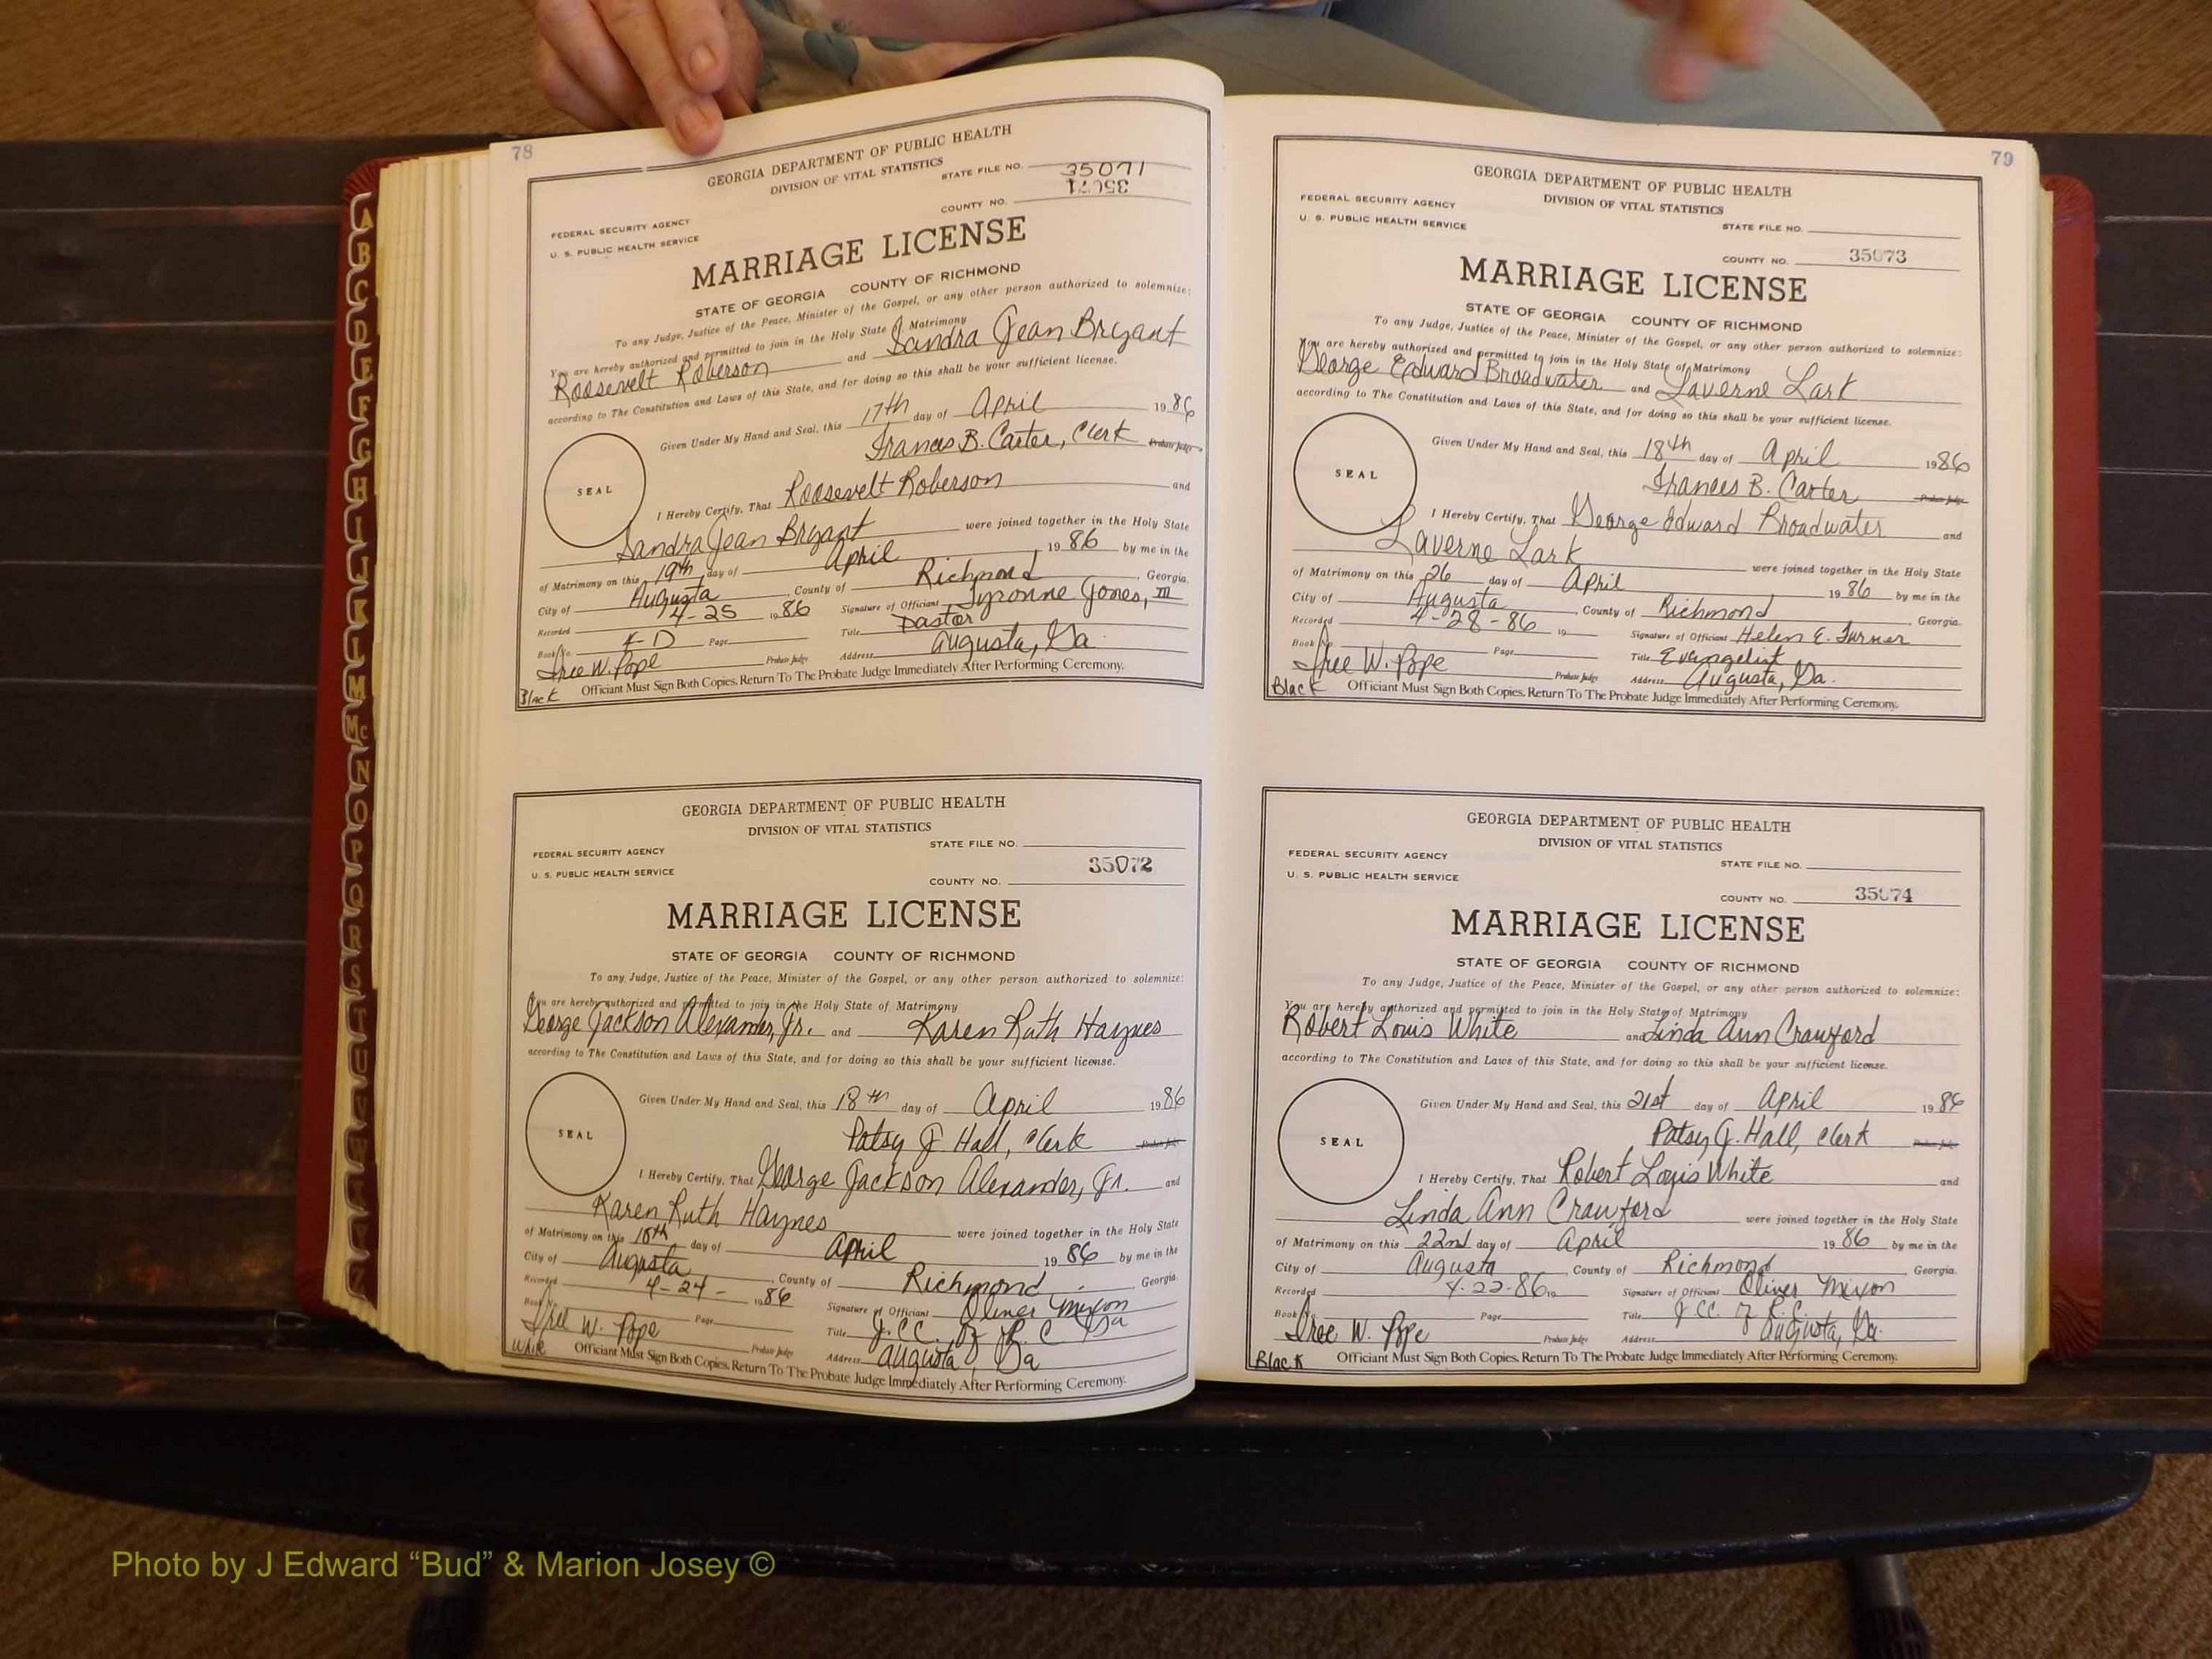 78
GEORGIA DEPARTMENT OF PUBLIC HEALTH
DIVISION OF VITAL STATISTICS
STATE FILE NO. 35071
35071
COUNTY NO.
FEDERAL SECURITY AGENCY
U. S. PUBLIC HEALTH SERVICE
MARRIAGE LICENSE
STATE OF GEORGIA COUNTY OF RICHMOND
To any Judge, Justice of the Peace, Minister of the Gospel, or any other person authorized to solemnize:
You are hereby authorized and permitted to join in the Holy State of Matrimony
Roosevelt Roberson and Sandra Jean Bryant
according to The Constitution and Laws of this State, and for doing so this shall be your sufficient license.
Given Under My Hand and Seal, this 17th day of April 1986
Frances B. Carter, Clerk Probate Judge
SEAL
I Hereby Certify, That Roosevelt Roberson and
Sandra Jean Bryant were joined together in the Holy State
of Matrimony on this 19th day of April 1986 by me in the
City of Augusta, County of Richmond, Georgia.
Recorded 4-25 1986 Signature of Officiant Tyronne Jones, III
Book No. 4-D Page Title Pastor
Iree W. Pope Probate Judge Address Augusta, Ga.
Black Officiant Must Sign Both Copies. Return To The Probate Judge Immediately After Performing Ceremony.
GEORGIA DEPARTMENT OF PUBLIC HEALTH
DIVISION OF VITAL STATISTICS
STATE FILE NO.
FEDERAL SECURITY AGENCY
35072
U. S. PUBLIC HEALTH SERVICE
COUNTY NO.
MARRIAGE LICENSE
STATE OF GEORGIA COUNTY OF RICHMOND
To any Judge, Justice of the Peace, Minister of the Gospel, or any other person authorized to solemnize:
You are hereby authorized and permitted to join in the Holy State of Matrimony
George Jackson Alexander, Jr. and Karen Ruth Haynes
according to The Constitution and Laws of this State, and for doing so this shall be your sufficient license.
Given Under My Hand and Seal, this 18th day of April 1986
Patsy J. Hall, Clerk Probate Judge
SEAL
I Hereby Certify, That George Jackson Alexander, Jr. and
Karen Ruth Haynes were joined together in the Holy State
of Matrimony on this day of April 1986 by me in the
City of Augusta, County of Richmond, Georgia.
Recorded 4-24- 1986 Signature of Officiant Oliver Mixon
Book No. Page Title J.CC. of R.C Ga
Iree W. Pope Probate Judge Address Augusta, Ga
White Officiant Must Sign Both Copies. Return To The Probate Judge Immediately After Performing Ceremony.
79
GEORGIA DEPARTMENT OF PUBLIC HEALTH
DIVISION OF VITAL STATISTICS
FEDERAL SECURITY AGENCY
U. S. PUBLIC HEALTH SERVICE
STATE FILE NO.
COUNTY NO. 35073
MARRIAGE LICENSE
STATE OF GEORGIA COUNTY OF RICHMOND
To any Judge, Justice of the Peace, Minister of the Gospel, or any other person authorized to solemnize:
You are hereby authorized and permitted to join in the Holy State of Matrimony
George Edward Broadwater and Laverne Lark
according to The Constitution and Laws of this State, and for doing so this shall be your sufficient license.
Given Under My Hand and Seal, this 18th day of April 1986
Frances B. Carter Probate Judge
SEAL
I Hereby Certify, That George Edward Broadwater and
Laverne Lark were joined together in the Holy State
of Matrimony on this 26 day of April 1986 by me in the
City of Augusta, County of Richmond, Georgia.
Recorded 4-28-86 19 Signature of Officiant Helen E. Turner
Book No. Page Title Evangelist
Iree W. Pope Probate Judge Address Augusta, Ga.
Black Officiant Must Sign Both Copies. Return To The Probate Judge Immediately After Performing Ceremony.
GEORGIA DEPARTMENT OF PUBLIC HEALTH
DIVISION OF VITAL STATISTICS
FEDERAL SECURITY AGENCY
STATE FILE NO.
U. S. PUBLIC HEALTH SERVICE
COUNTY NO. 35074
MARRIAGE LICENSE
STATE OF GEORGIA COUNTY OF RICHMOND
To any Judge, Justice of the Peace, Minister of the Gospel, or any other person authorized to solemnize:
You are hereby authorized and permitted to join in the Holy State of Matrimony
Robert Louis White and Linda Ann Crawford
according to The Constitution and Laws of this State, and for doing so this shall be your sufficient license.
Given Under My Hand and Seal, this 21st day of April 1986
Patsy J. Hall, Clerk Probate Judge
SEAL
I Hereby Certify, That Robert Louis White and
Linda Ann Crawford were joined together in the Holy State
of Matrimony on this 22nd day of April 1986 by me in the
City of Augusta, County of Richmond, Georgia.
Recorded 4-22-86 19 Signature of Officiant Oliver Mixon
Book No. Page Title J.CC. of R.C.
Iree W. Pope Probate Judge Address Augusta, Ga.
Black Officiant Must Sign Both Copies. Return To The Probate Judge Immediately After Performing Ceremony.
A
B
C
D
E
F
G
H
I
J
K
L
M
Mc
N
O
P
Q
R
S
T
U
V
Photo by J Edward “Bud” & Marion Josey ©